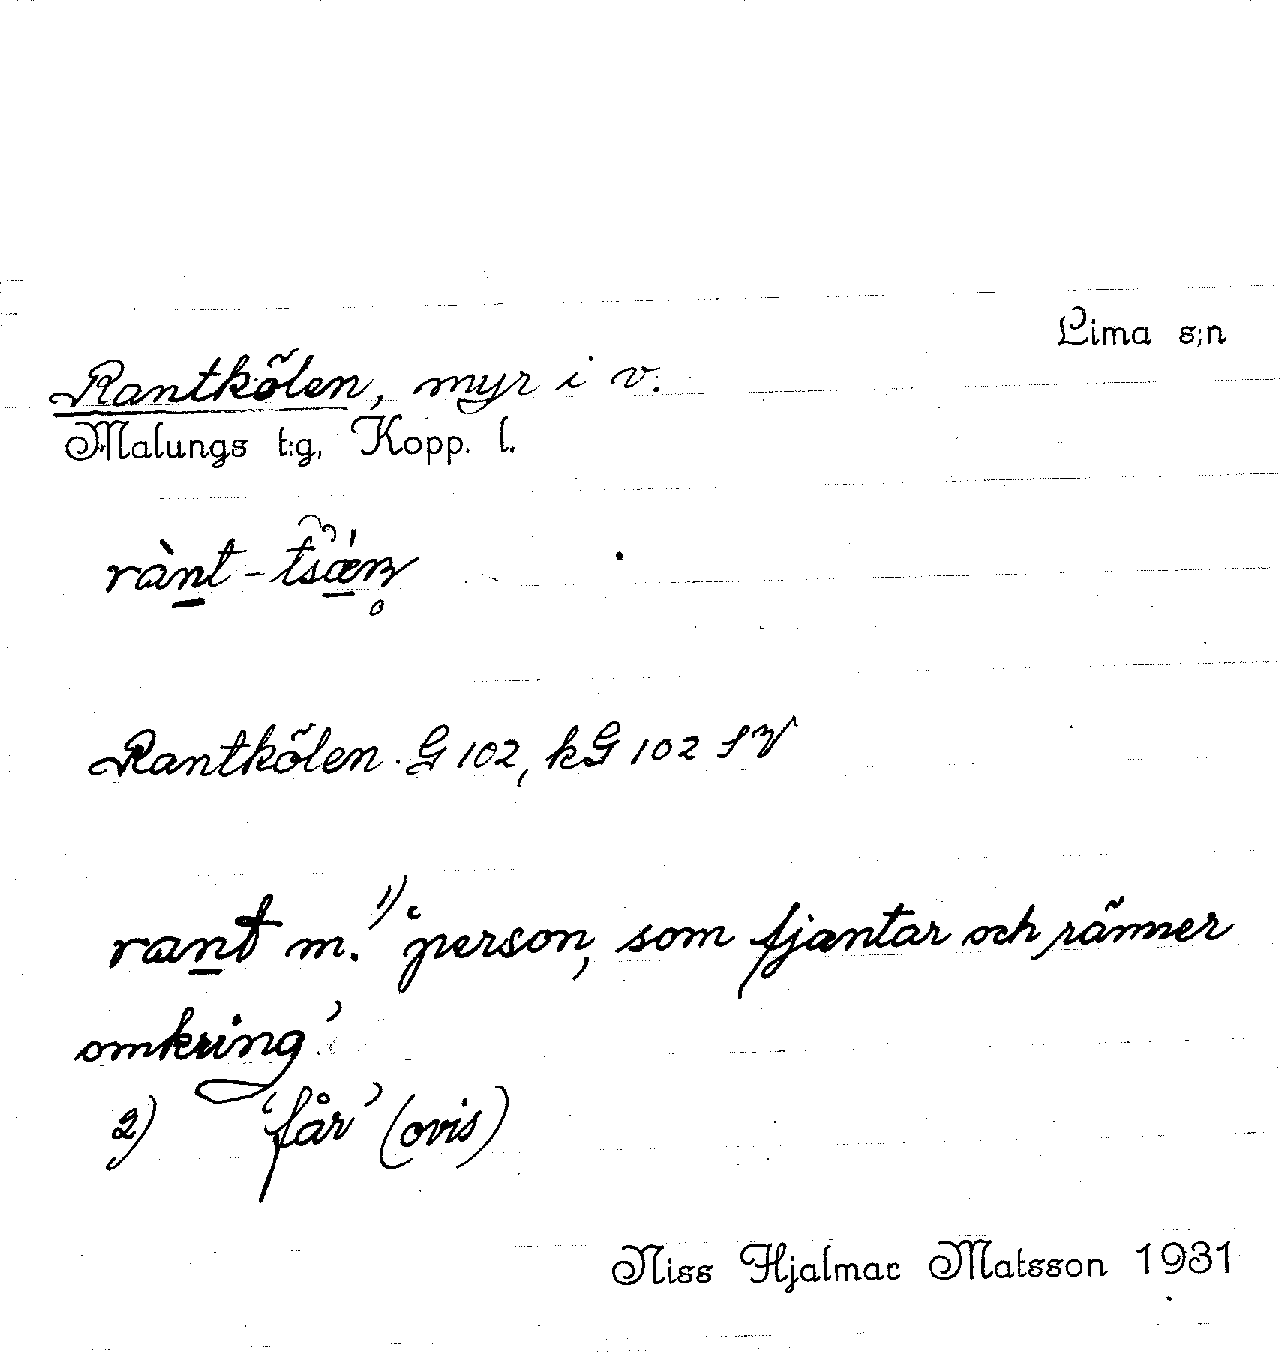 Lima s:n
Rantkölen, myr i v.
Malungs t:g, Kopp. l.
Rantkölen. G 102, kG 102 SV
rant m. 1) ‘person, som fjantar och ränner
omkring’
2) ‘får’ (ovis)
Niss Hjalmar Matsson 1931